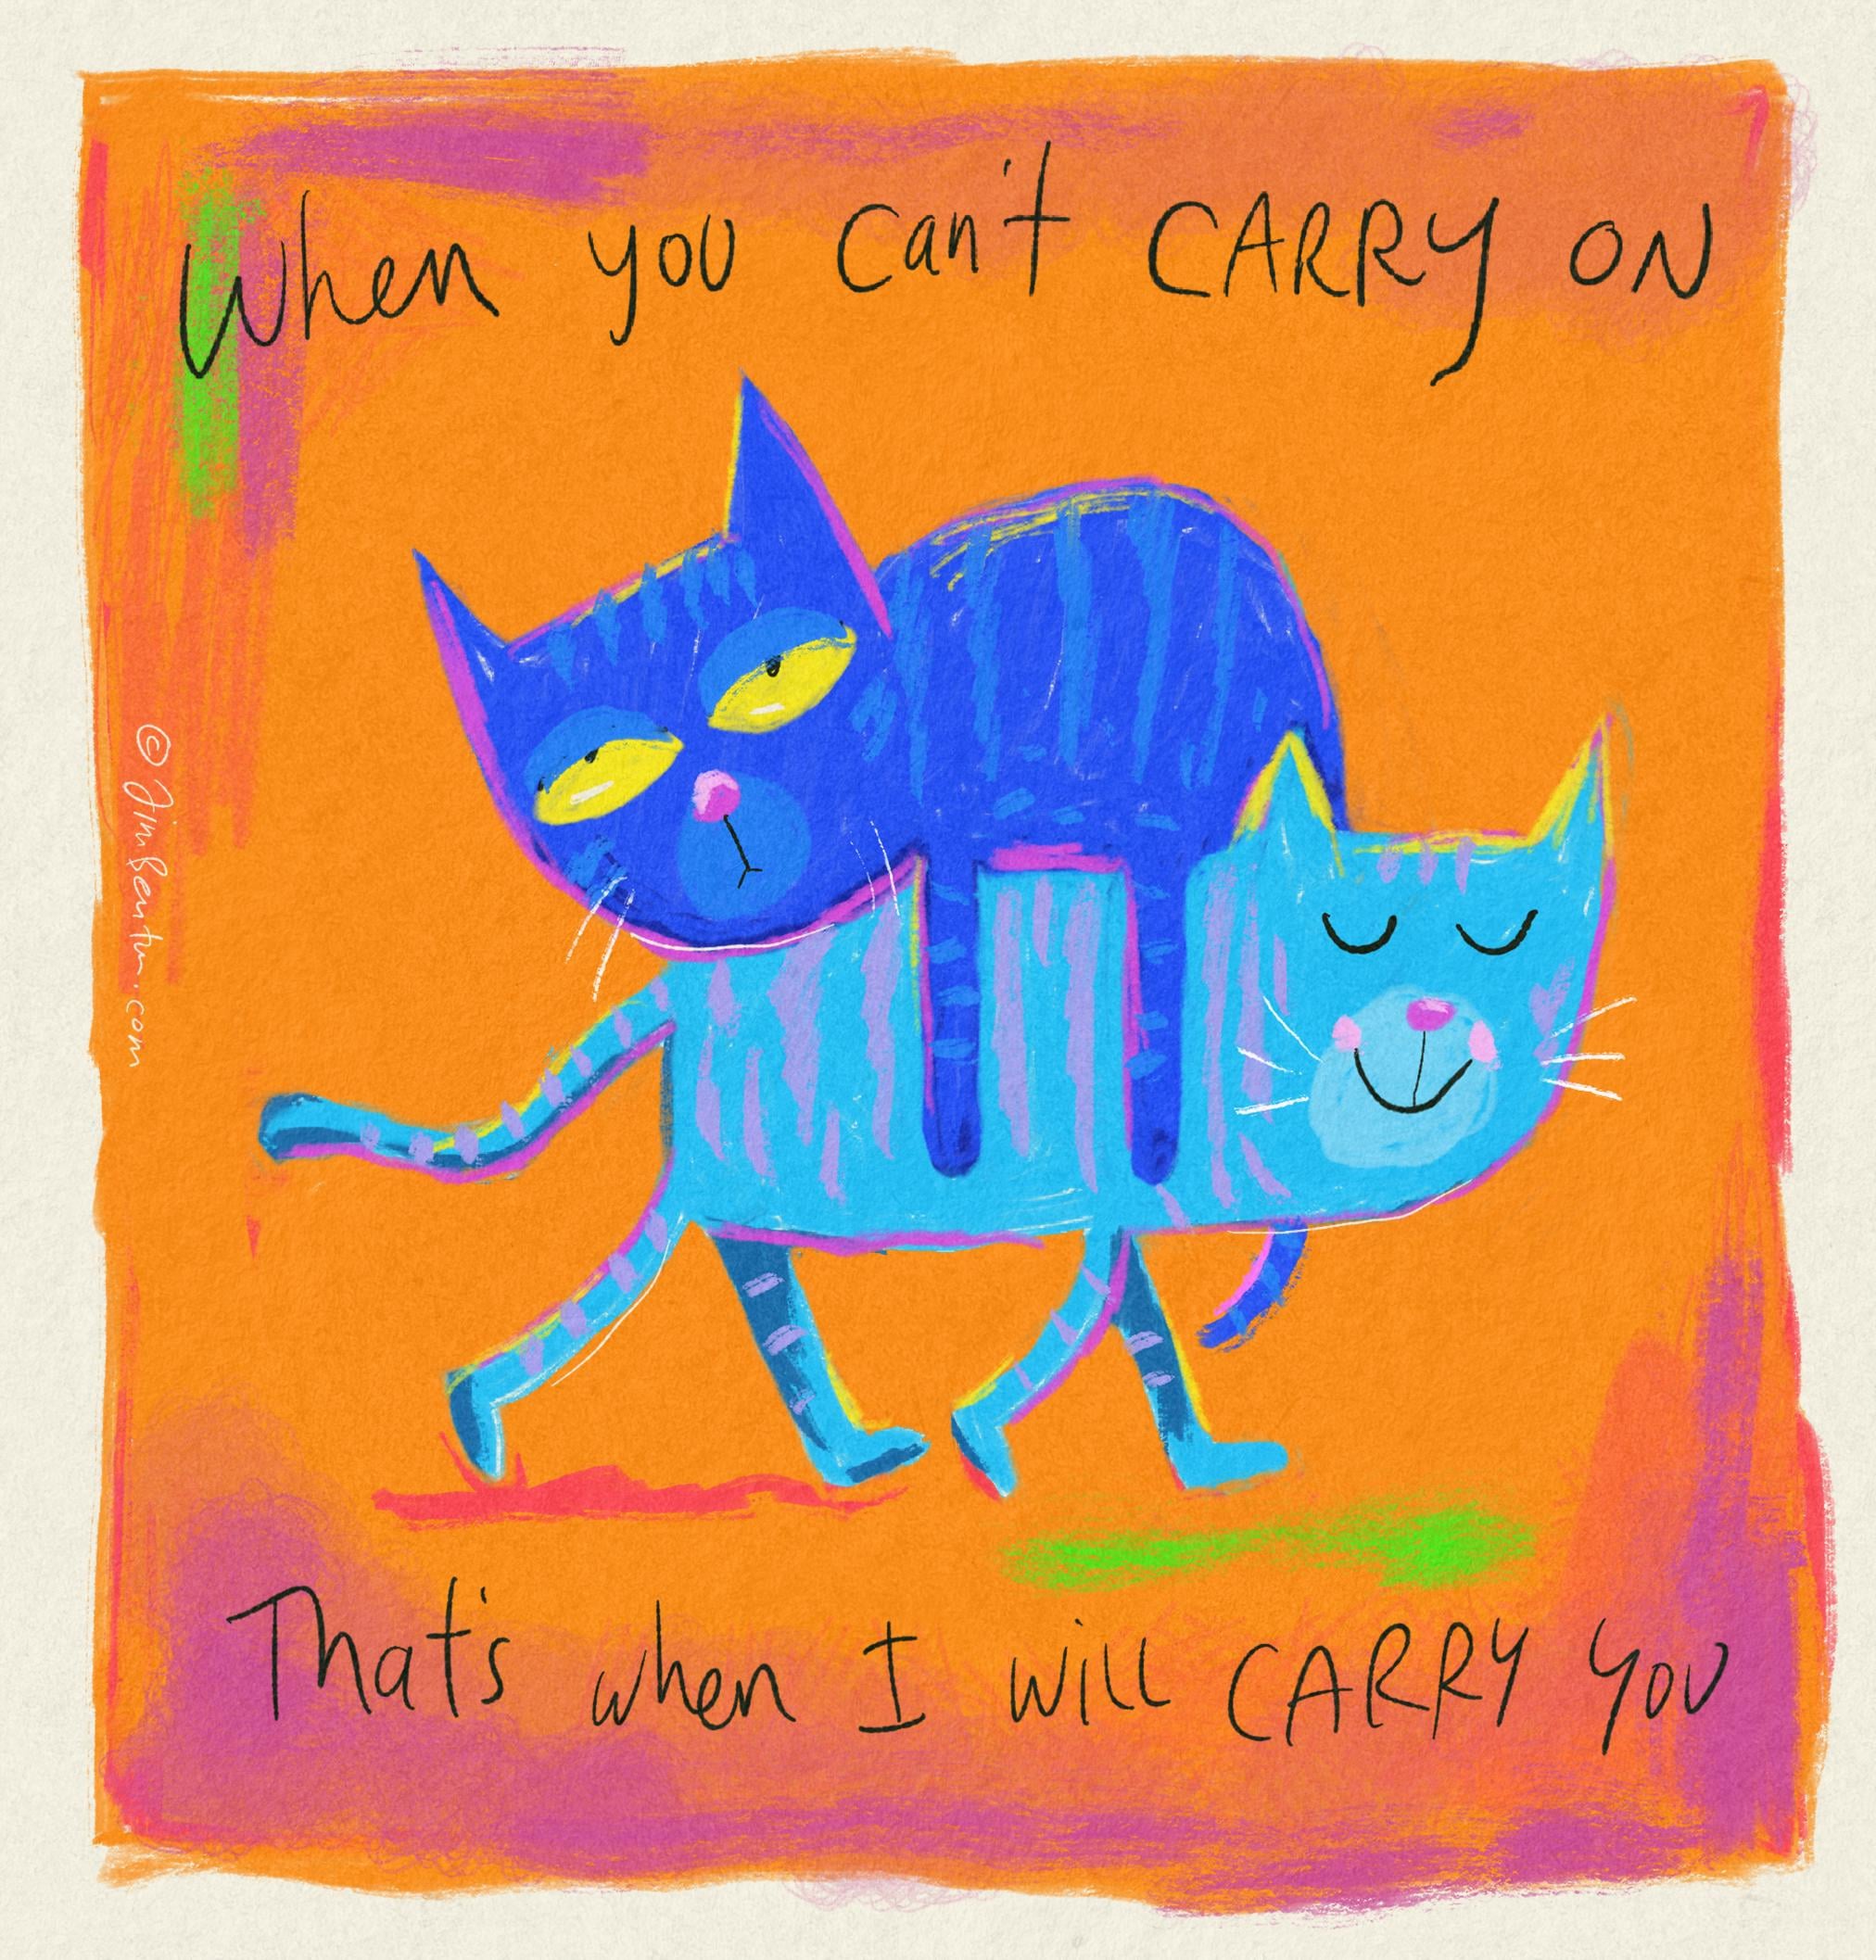 When you can't CARRY ON
© JimBentun.com
That's when I will CARRY YOU